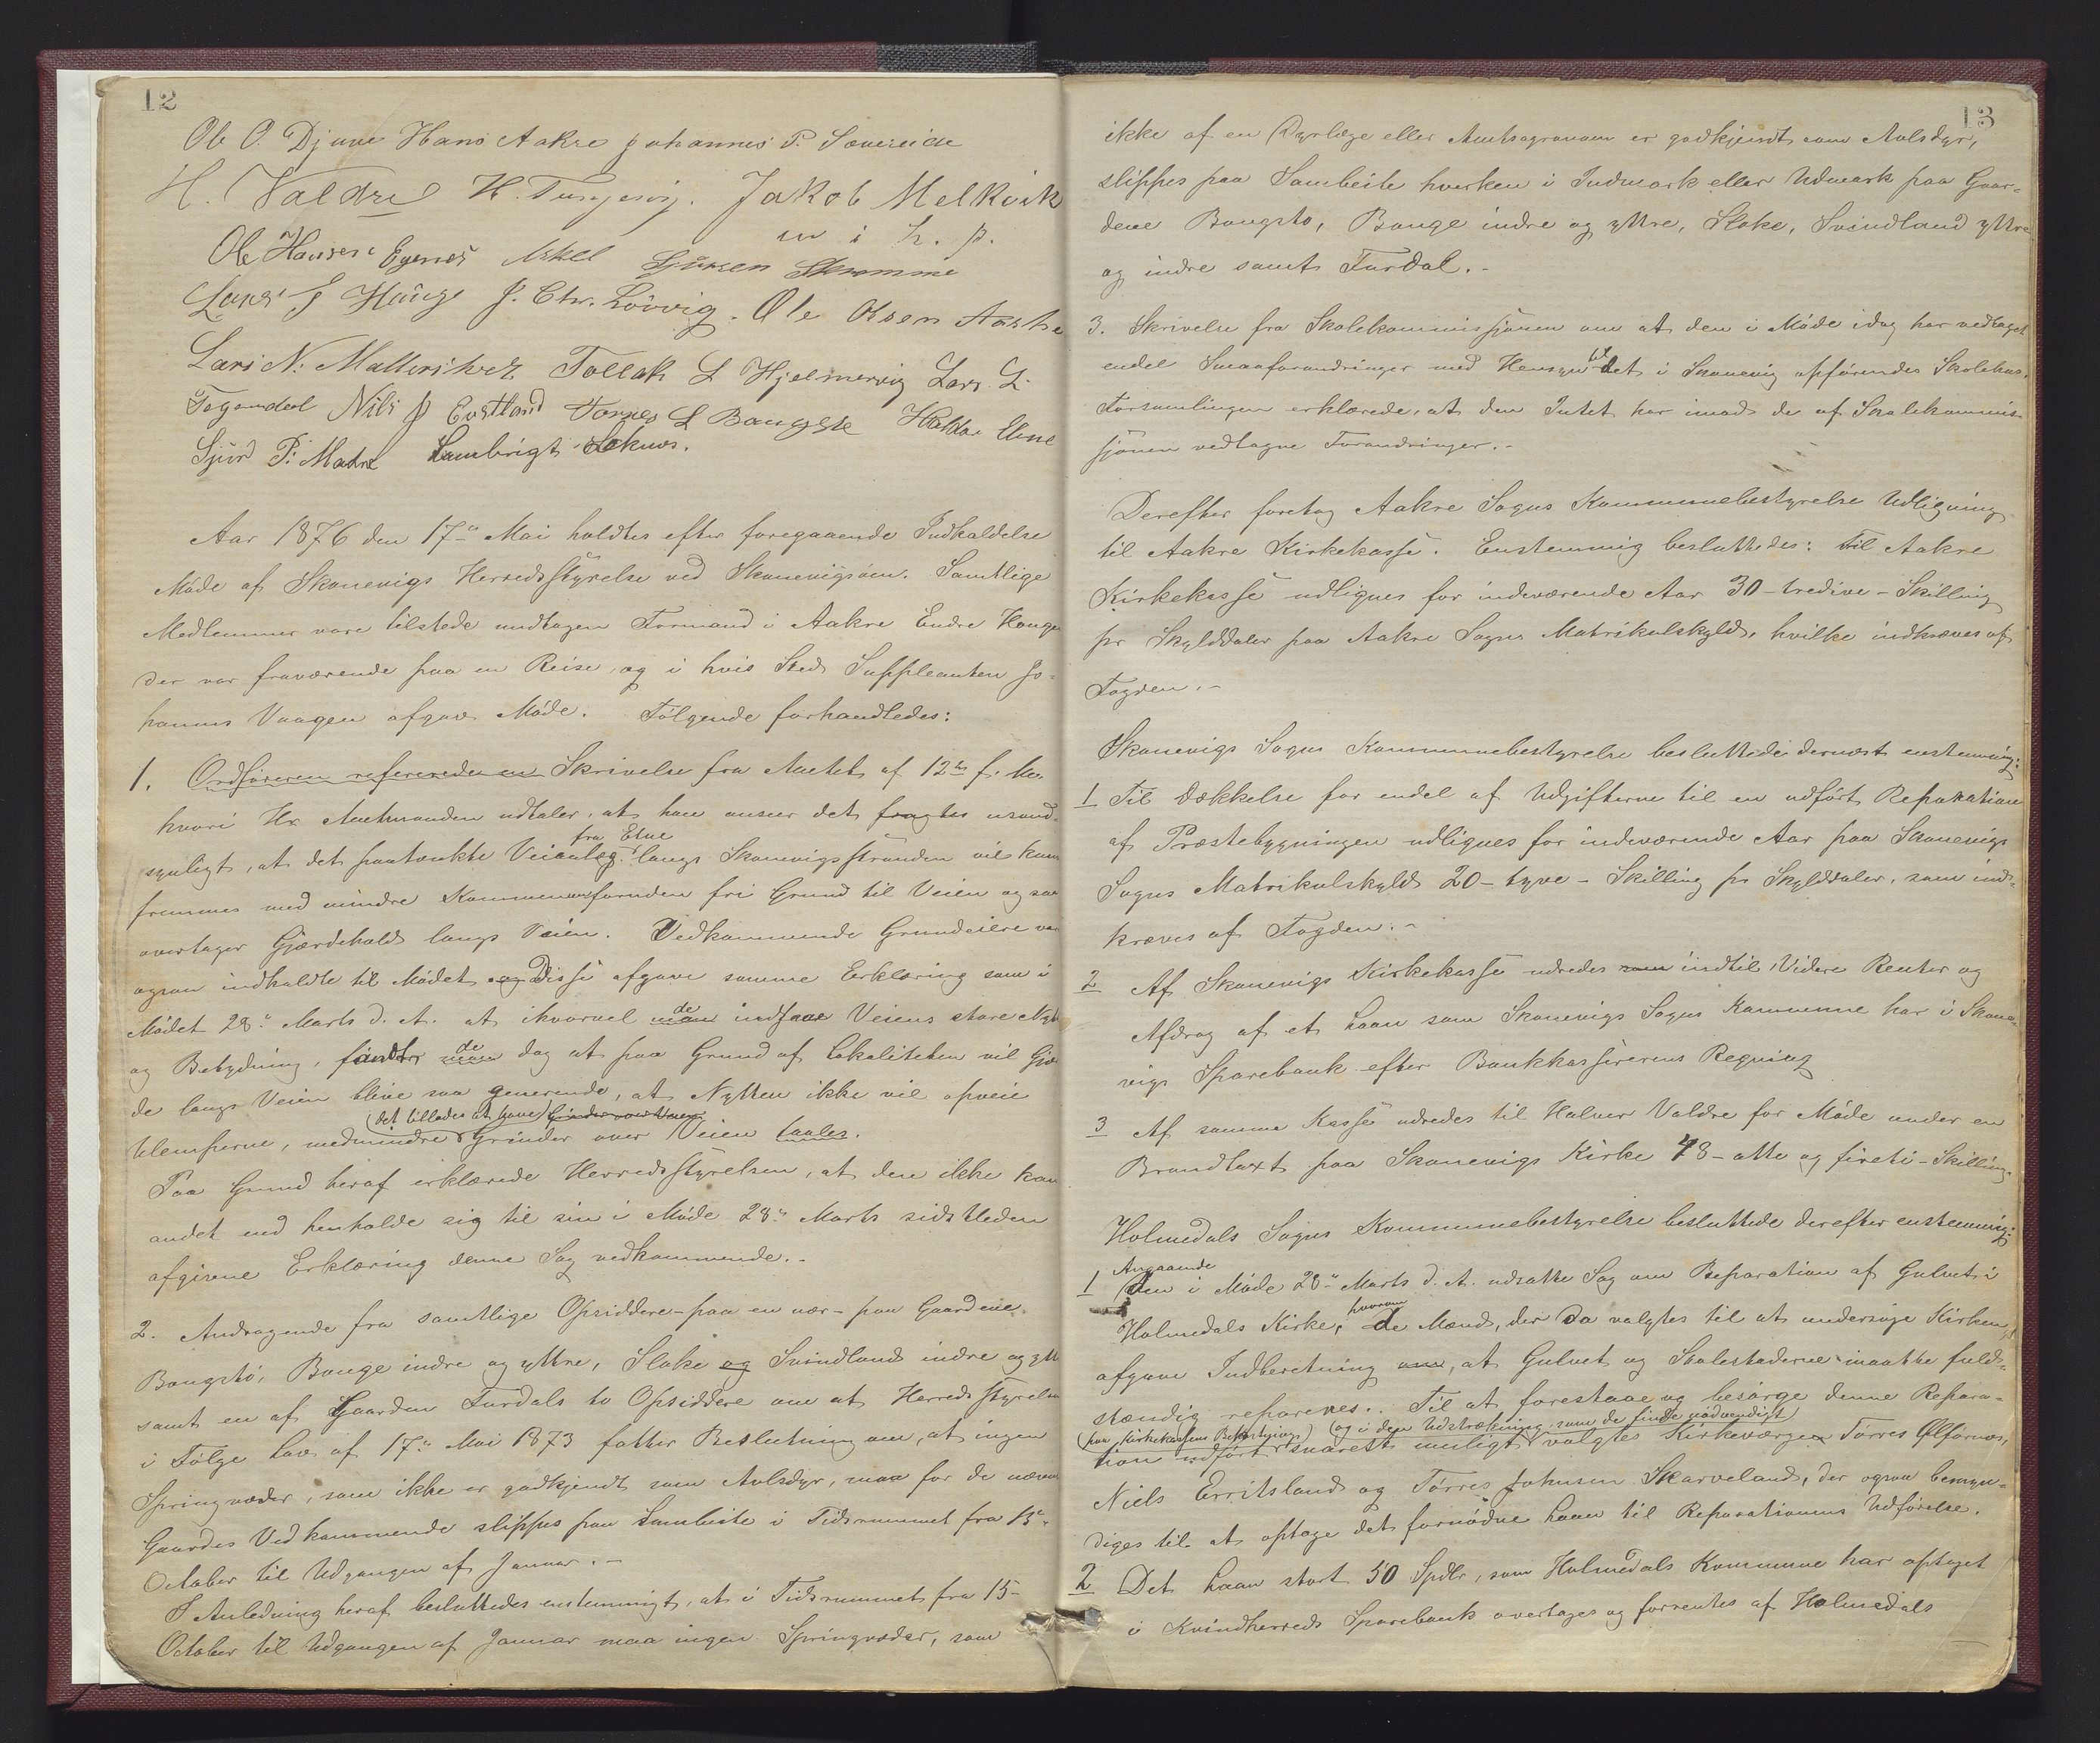 12
Ole O. Djuve Hans Aakre Johannes P. Sævereide
H. Valdre H. Tungesvig. Jakob Melkvik
m i h. p.
Ole Hansen Egenes Askel Sjursen Skromme
Lars J Hauge J. Chr. Lövvig. Ole Olsen
Lars N. Tollak L Hjelmervig Lars L.
Nils J Torres L Baugste Haldor Etne
Sjur P. Matre Lambrigt Løknes.
Aar 1876 den 17de Mai holdtes efter foregaaende Indkaldelse
Møde af Skonevigs Herredsstyrelse ved Skonevigsøen. Samtlige
Medlemmer vare tilstede undtagen Formand i Aakre Endre Hauge
der var fraværende paa en Reise, og i hvis Sted Suppleanten Jo-
hannes Vaagen afgav Møde. Følgende forhandledes:
1. Ordføreren refererede en Skrivelse fra Amtet af 12te f. M.
hvori Hr. Amtmanden udtaler, at han anseer det usand-
synligt, at det paatænkte Veianlæg langs Skonevigsstranden vil kun
fra Etne
fremmes med mindre Kommunen foruden fri Grund til Veien ogsaa
overtager Gjærdehold langs Veien. Vedkommende Grundeiere var
ogsaa indkaldte til Mødet og Disse afgave samme Erklæring som i
Mødet 28de Marts d. A. at ihvorvel de man indsaae Veiens store Nytte
og Betydning, fandt de man dog at paa Grund af Lokaliteten vil Gjær-
de langs Veien blive saa generende, at Nytten ikke vil opveie
(det tillades at have) Grinder over Veien
Ulemperne, medmindre Grinder over Veien taales.
Paa Grund heraf erklærede Herredsstyrelsen, at den ikke kan
andet end henholde sig til sin i Møde 28de Marts sidstleden
afgivne Erklæring denne Sag vedkommende.-
2. Andragende fra samtlige Opsiddere - paa en nær - paa Gaardene
Baugstø, Bauge indre og yttre, Stoke og Svindland indre og ytt
samt en af Gaarden Furdals to Opsiddere om at Herredsstyrelsen
i Følge Lov af 17de Mai 1873 fatter Beslutning om, at ingen
Springvæder, som ikke er godkjendt som Avlsdyr, maa for de nævnte
Gaardes Vedkommende slippes paa Sambeite i Tidsrummet fra 15de
October til Udgangen af Januar.-
I Anledning heraf besluttedes enstemmigt, at i Tidsrummet fra 15-
October til Udgangen af Januar maa ingen Springvæder, som
13
ikke af en Dyrlæge eller Amtsagronom er godkjendt som Avlsdyr,
slippes paa Sambeite hverken i Indmark eller Udmark paa Gaar-
dene Baugstø, Bauge indre og yttre, Stoke, Svindland yttre
og indre samt Furdal.-
3. Skrivelse fra Skolekommissjonen om at den i Møde idag har vedtaget
endel Smaaforandringer med Hensyn til det i Skonevig opførendes Skolehus.
Forsamlingen erklærede, at den Intet har imod de af Skolekommis-
sjonen vedtagne Forandringer.-
Derefter foretog Aakre Sogns Kommunebestyrelse Udligning
til Aakre Kirkekasse. Enstemmig besluttedes: til Aakre
Kirkekasse udlignes for indeværende Aar 30 - tredive - Skilling
pr Skylddaler paa Aakre Sogns Matrikulskyld, hvilke indkræves af
Fogden.-
Skonevigs Sogns Kommunebestyrelse besluttede dernæst enstemmig:
1 Til Dækkelse for endel af Udgifterne til en udført Reparation
af Præstebygningen udlignes for indeværende Aar paa Skonevigs
Sogns Matrikulskyld 20 - tyve - Skilling pr Skylddaler, som ind-
kræves af Fogden.-
2 Af Skonevigs Kirkekasse udredes som indtil Videre Renter og
Afdrag af et Laan som Skonevigs Sogns Kommune har i Skone-
vigs Sparebank efter Bankkassererens Regning
3 Af samme Kasse udredes til Halvor Valdre for Møde under en
Brandtaxt paa Skonevigs Kirke 48 - otte og fireti - Skilling.
Holmedals Sogns Kommunebestyrelse besluttede derefter enstemmig:
Angaaende
1 den i Møde 28de Marts d. A. udsatte Sag om Reparation af Gulvet i
Holmedals Kirke, hvorom de Mænd, der da valgtes til at undersøge Kirken,
afgave Indberetning om, at Gulvet og Stolestaderne maatte fuld-
stændig repareres. Til at forestaae og besørge denne Repara-
(for Kirkekassens Bekostning) (og i den Udstrækning som de finde nødvendigt)
tion udført snarest muligt valgtes Kirkeværgen Tørres Ølfarnæs,
Niels Erritsland og Tørres Johnsen Skarveland, der ogsaa bemyn-
diges til at optage det fornødne Laan til Reparationens Udførelse.
2 Det Laan stort 50 Spdlr, som Holmedals Kommune har optaget
i Kvindherreds Sparebank overtages og forrentes af Holmedals